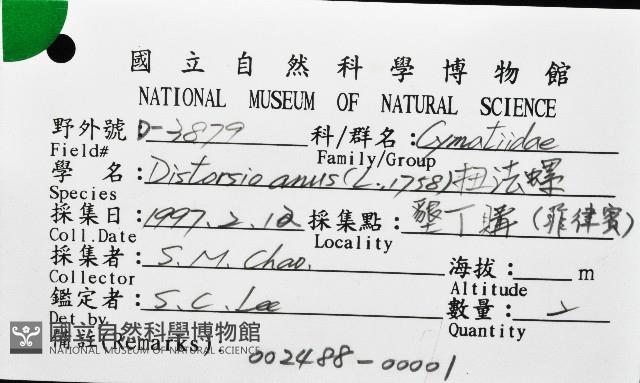 國立自然科學博物館
NATIONAL MUSEUM OF NATURAL SCIENCE
野外號：D-3879 科/群名：Cymatiidae
Field# Family/Group
學 名：Distorsio anus (L., 1758) 扭法螺
Species
採集日：1997.2.12 採集點：墾丁購（菲律賓）
Coll.Date Locality
採集者：S. M. Chao. 海拔： m
Collector Altitude
鑑定者：S. C. Lee 數量：2
Det.by Quantity
備註(Remarks):
國立自然科學博物館
NATIONAL MUSEUM OF NATURAL SCIENCE
002488-00001